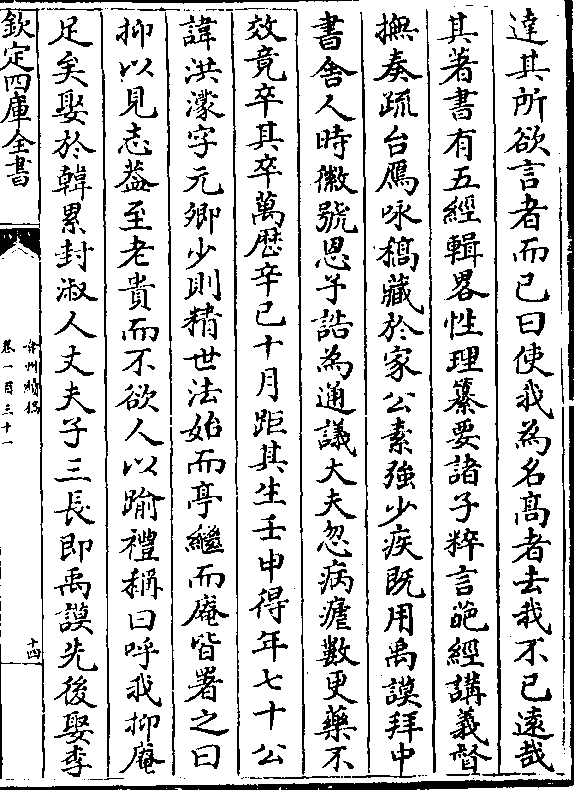 達其所欲言者而已曰使我為名髙者去我不已遠哉
其著書有五經輯畧性理纂要諸子粹言葩經講義督
撫奏疏台鴈咏稿藏於家公素強少疾既用禹謨拜中
書舍人時徽號恩予誥為通議大夫忽病瘧數更藥不
效竟卒其卒萬厯辛巳十月距其生壬申得年七十公
諱洪濛字元卿少則精世法始而亭繼而庵皆署之曰
抑以見志葢至老貴而不欲人以踰禮稱曰呼我抑庵
足矣娶於韓累封淑人丈夫子三長即禹謨先後娶李
欽定四庫全書
弇州續稿
卷一百三十一
十四